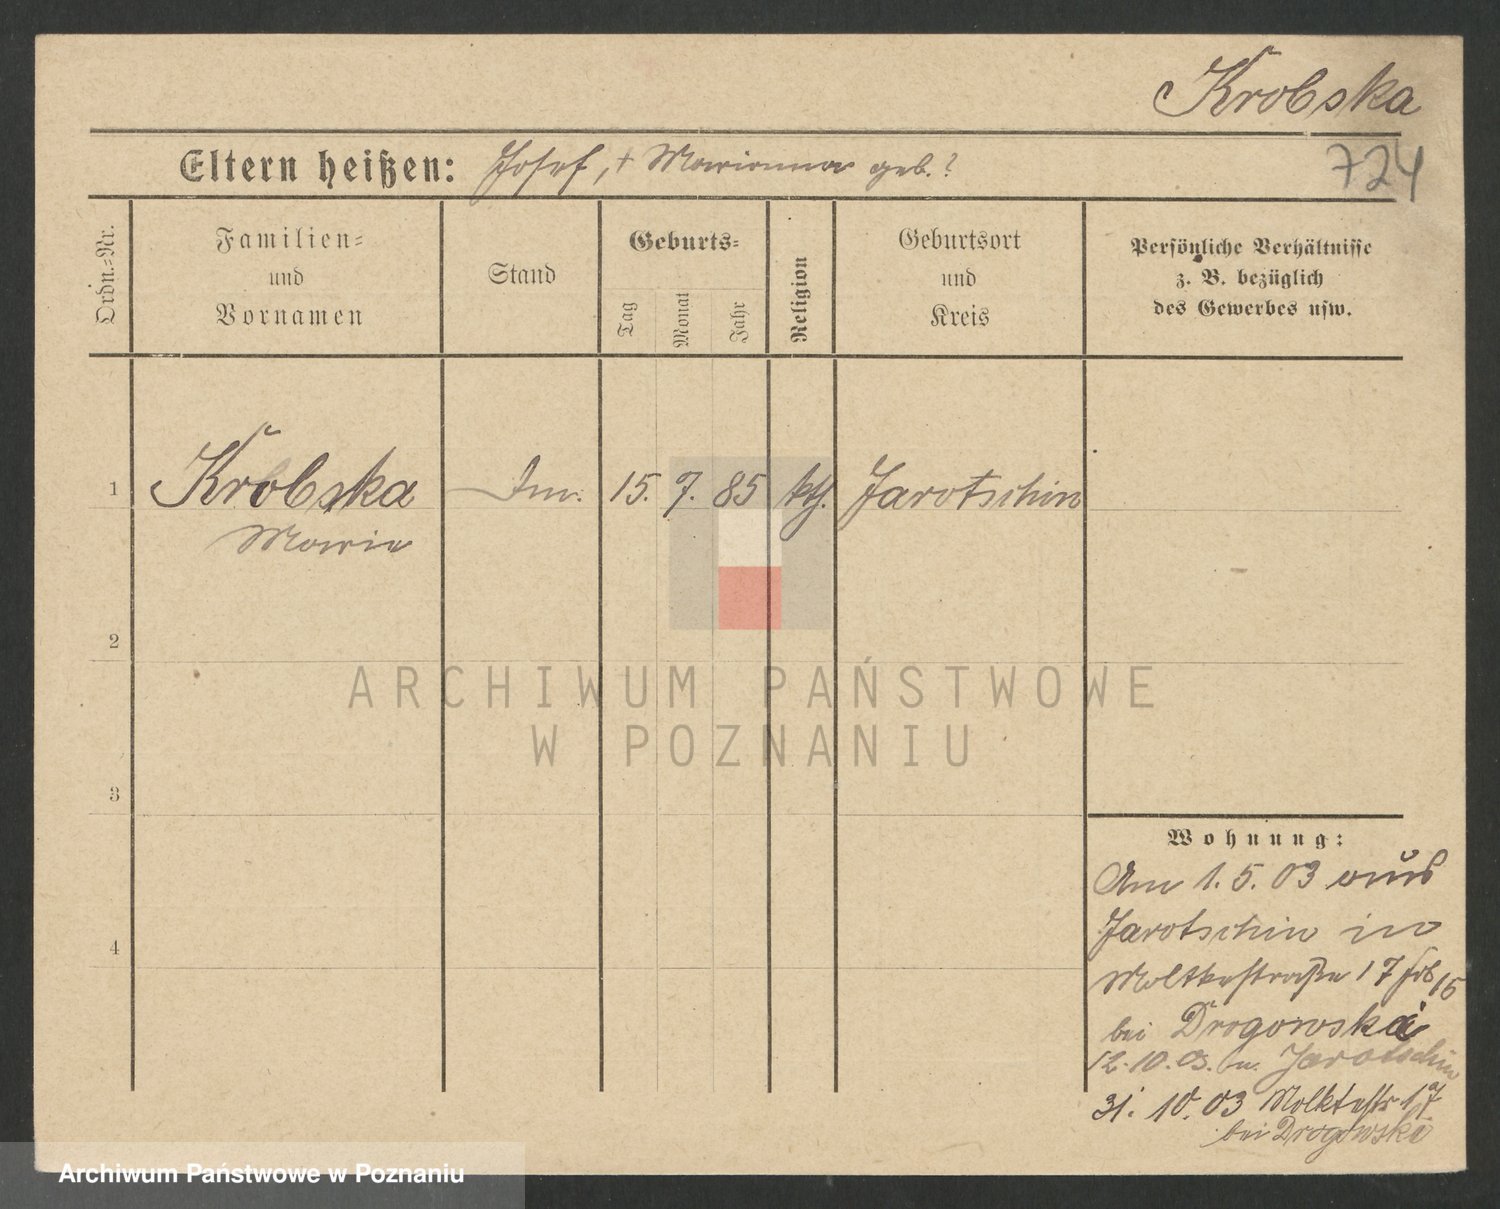 Krobska
724
Eltern heißen: Josef, + Marianna geb. ?
Ordn.-Nr.
Familien-
und
Vornamen
Stand
Geburts-
Tag
Monat
Jahr
Religion
Geburtsort
und
Kreis
Persönliche Verhältnisse
z. B. bezüglich
des Gewerbes usw.
1 Krobska 15. 7. 85 kth. Jarotschin
Marie
2
3
4
Wohnung:
Am 1. 5. 03 aus
Jarotschin in
Moltkestraße 17
bei Drogowski
12. 10. 03. n. Jarotschin
31. 10. 03 Molktestr 17
bei Drogowski
ARCHIWUM PAŃSTWOWE
W POZNANIU
Archiwum Państwowe w Poznaniu